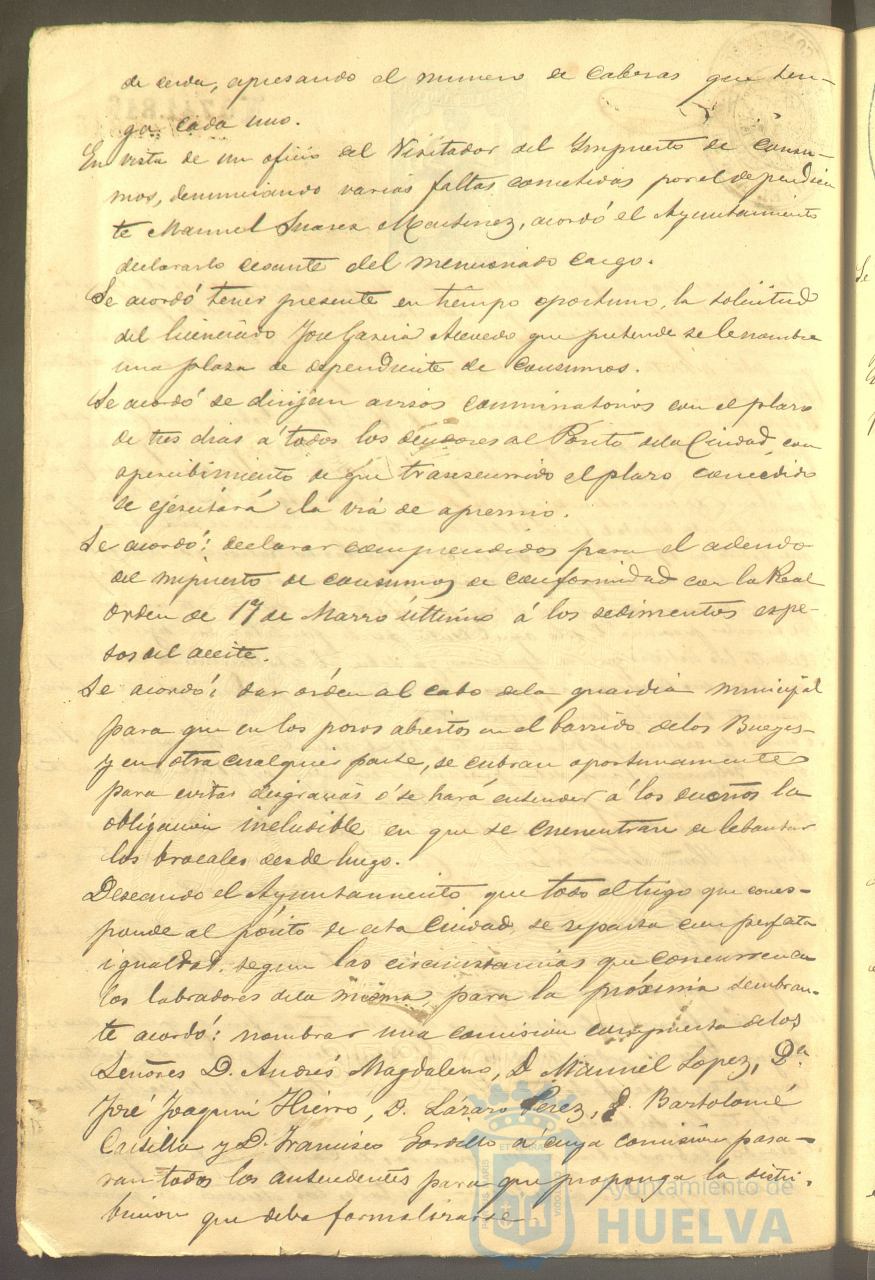 de cerda, apresando el numero de cabezas que ten-
ga cada uno.
En vista de un oficio del Visitador del Impuesto de Consu-
mos, denunciando varias faltas cometidas por el dependien
te Manuel Suarez Martinez, acordó el Ayuntamiento
declararlo cesante del mencionado cargo.
Se acordó tener presente en tiempo oportuno, la solicitud
del licenciado José Garcia Acevedo que pretende se le nombre
una plaza de dependiente de consumos.
Se acordó se dirijan avisos conminatorios con el plazo
de tres dias á todos los deudores al Pósito de la Ciudad, con
apercibimiento de que transcurrido el plazo concedido
se ejercitará la via de apremio.
Se acordó: declarar comprendidos para el adeudo
del impuesto de consumos de conformidad con la Real
orden de 17 de Marzo último á los sedimentos espe-
sos del aceite.
Se acordó: dar órden al cabo de la guardia municipal
para que en los pozos abiertos en el barrido de los Bueyes
y en otra cualquier parte, se cubran oportunamente
para evitar desgracias ó se hará entender á los dueños la
obligacion ineludible en que se encuentran de lebantar
los brocales desde luego.
Deseando el Ayuntamiento que todo el trigo que corres-
ponde al pósito de esta Ciudad, se reparta con perfecta
igualdad, segun las circunstancias que concurren en
los labradores de la misma, para la próxima semban-
te acordó: nombrar una comision compuesta de los
Señores D. Andrés Magdaleno, D. Manuel Lopez, Dn.
José Joaquin Hierro, D. Lázaro Perez, D. Bartolomé
Castilla y D. Francisco Gordillo a cuya comision pasa-
ran todos los antecedentes para que proponga la distri-
bucion que deba formalizarse
Ayuntamiento de
HUELVA